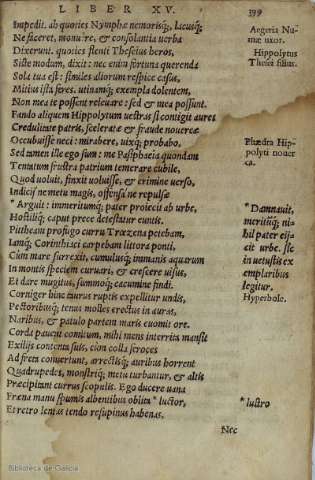 LIBER XV. 399
Impedit. ah quoties Nymphæ nemorisq́;, lacusq́;
Ne faceret, monuêre, & consolantia uerba
Dixerunt. quoties flenti Theseius heros,
Siste modum, dixit: nec enim fortuna querenda
Sola tua est: similes aliorum respice casus,
Mitius ista feres. utinamq́; exempla dolentem,
Non mea te possent releuare: sed & mea possunt.
Fando aliquem Hippolytum uestras si contigit aures
Credulitate patris, sceleratæ & fraude nouercæ
Occubuisse neci: mirabere, uixq́; probabo.
Sed tamen ille ego sum: me Pasiphaëia quondam
Tentatum frustra patrium temerare cubile,
Quod uoluit, finxit uoluisse, & crimine uerso,
Indicij ne metu magis, offensa ne repulsæ
* Arguit: immeritumq́; pater proiecit ab urbe,
Hostiliq́; caput prece detestatur euntis.
Pittheam profugo curru Trœzena petebam,
Iamq́; Corinthiaci carpebam littora ponti.
Cum mare surrexit, cumulusq́; immanis aquarum
In montis speciem curuari, & crescere uisus,
Et dare mugitus, summoq́; cacumine findi.
Corniger hinc taurus ruptis expellitur undis,
Pectoribusq́; tenus molles erectus in auras,
Naribus, & patulo partem maris euomit ore.
Corda pauent comitum, mihi mens interrita mansit
Exilijs contenta suis, cùm colla feroces
Ad freta conuertunt, arrectisq́; auribus horrent
Quadrupedes, monstriq́; metu turbantur, & altis
Præcipitant currus scopulis. Ego ducere uana
Fræna manu spumis albentibus oblita * luctor,
Et retro lentas tendo resupinus habenas.
Nec
Aegeria Nu-
mæ uxor.
Hippolytus
Thesei filius.
Phædra Hip-
polyti nouer
ca.
* Damnauit,
meritumq́; ni-
hil pater eij-
cit urbe. sic
in uetustis ex
emplaribus
legitur.
Hyperbole.
* lustro
Biblioteca de Galicia